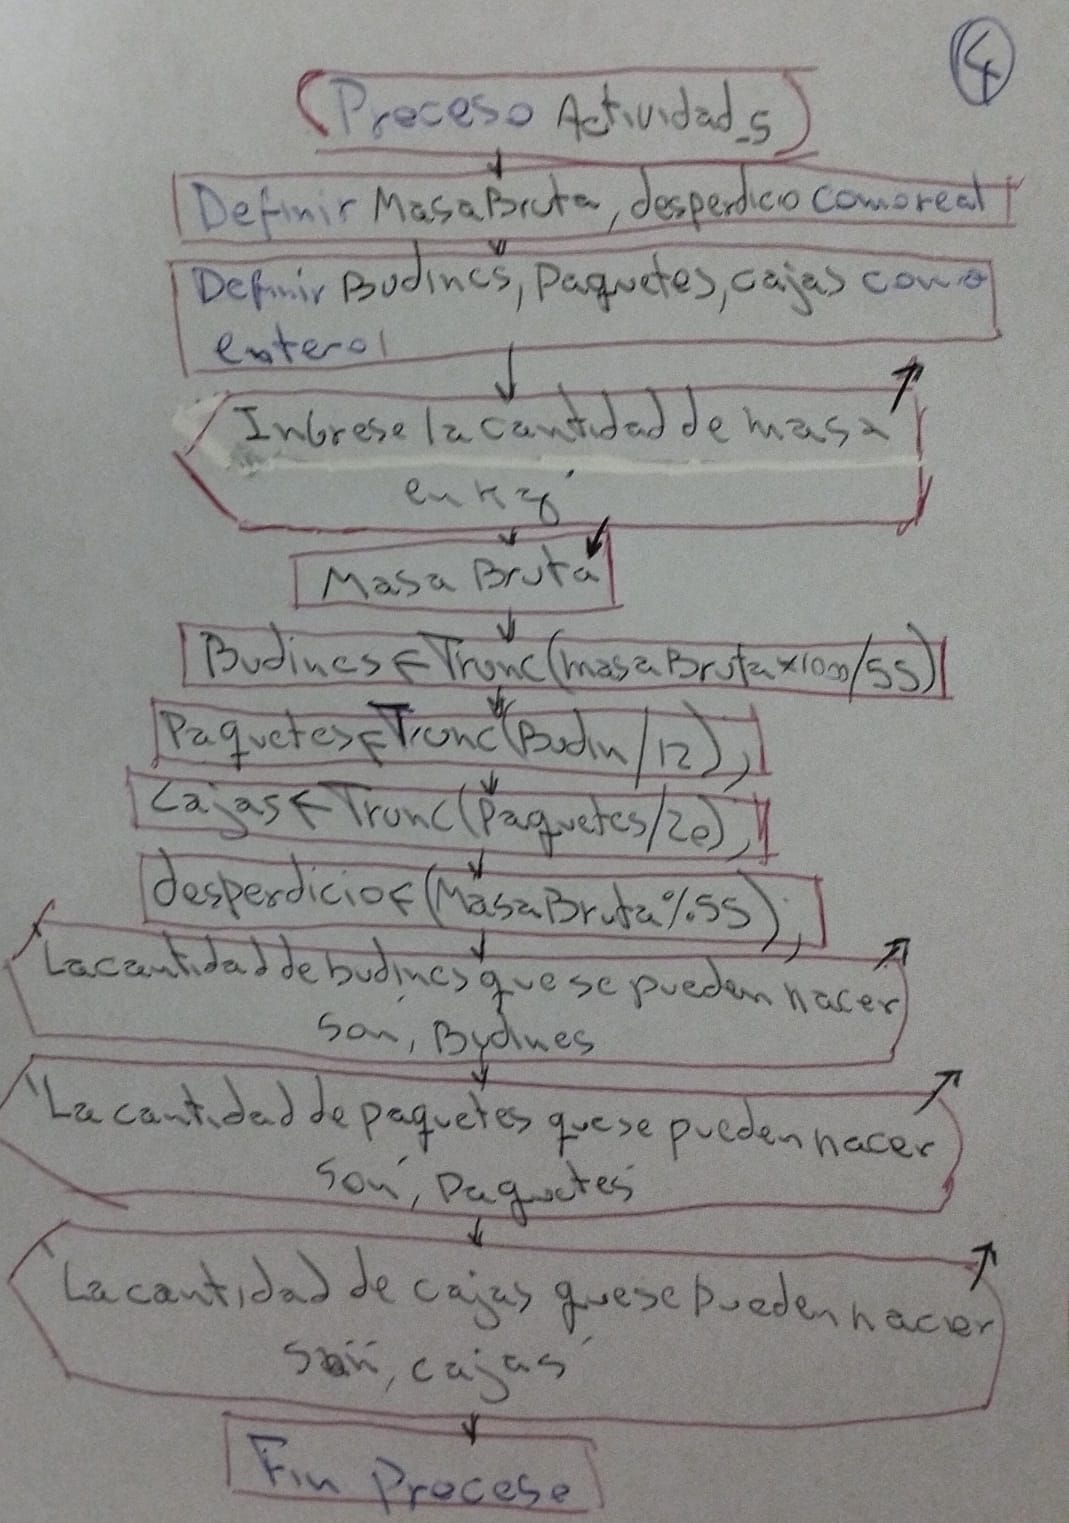 4
Proceso Actividad_5
Definir MasaBruta, desperdicio como real
Definir Budines, Paquetes, cajas como
entero
Ingrese la cantidad de masa
en Kg'
Masa Bruta
Budines ← Trunc(masaBruta x1000/55)
Paquetes ← Trunc(Budin/12);
Cajas ← Trunc(Paquetes/20);
desperdicio ← (MasaBruta%55);
La cantidad de budines que se pueden hacer
son', Budines
'La cantidad de paquetes que se pueden hacer
son', Paquetes
'La cantidad de cajas que se pueden hacer
son', cajas
Fin Proceso